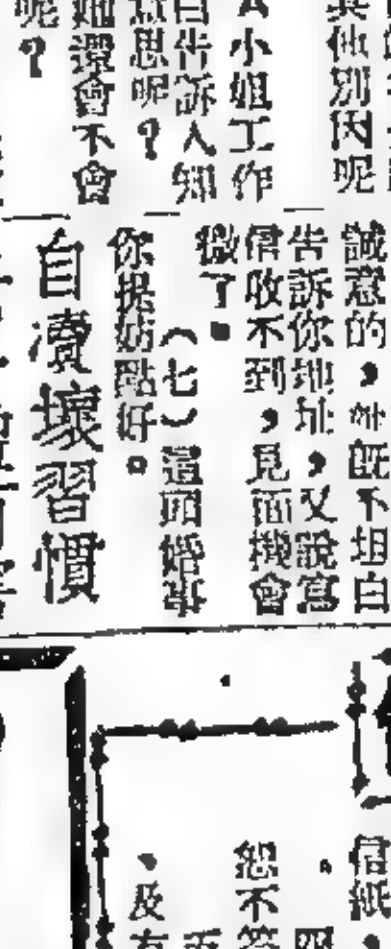 其他別因呢
A小姐工作
白告訴人知
意思呢？
她還會不會
呢？
誠意的，她既不坦白
告訴你地址，又說寫
信收不到，見面機會
微了。
（七）這頭婚事
你提防點好。
自瀆壞習慣
信紙
恕不答
及有